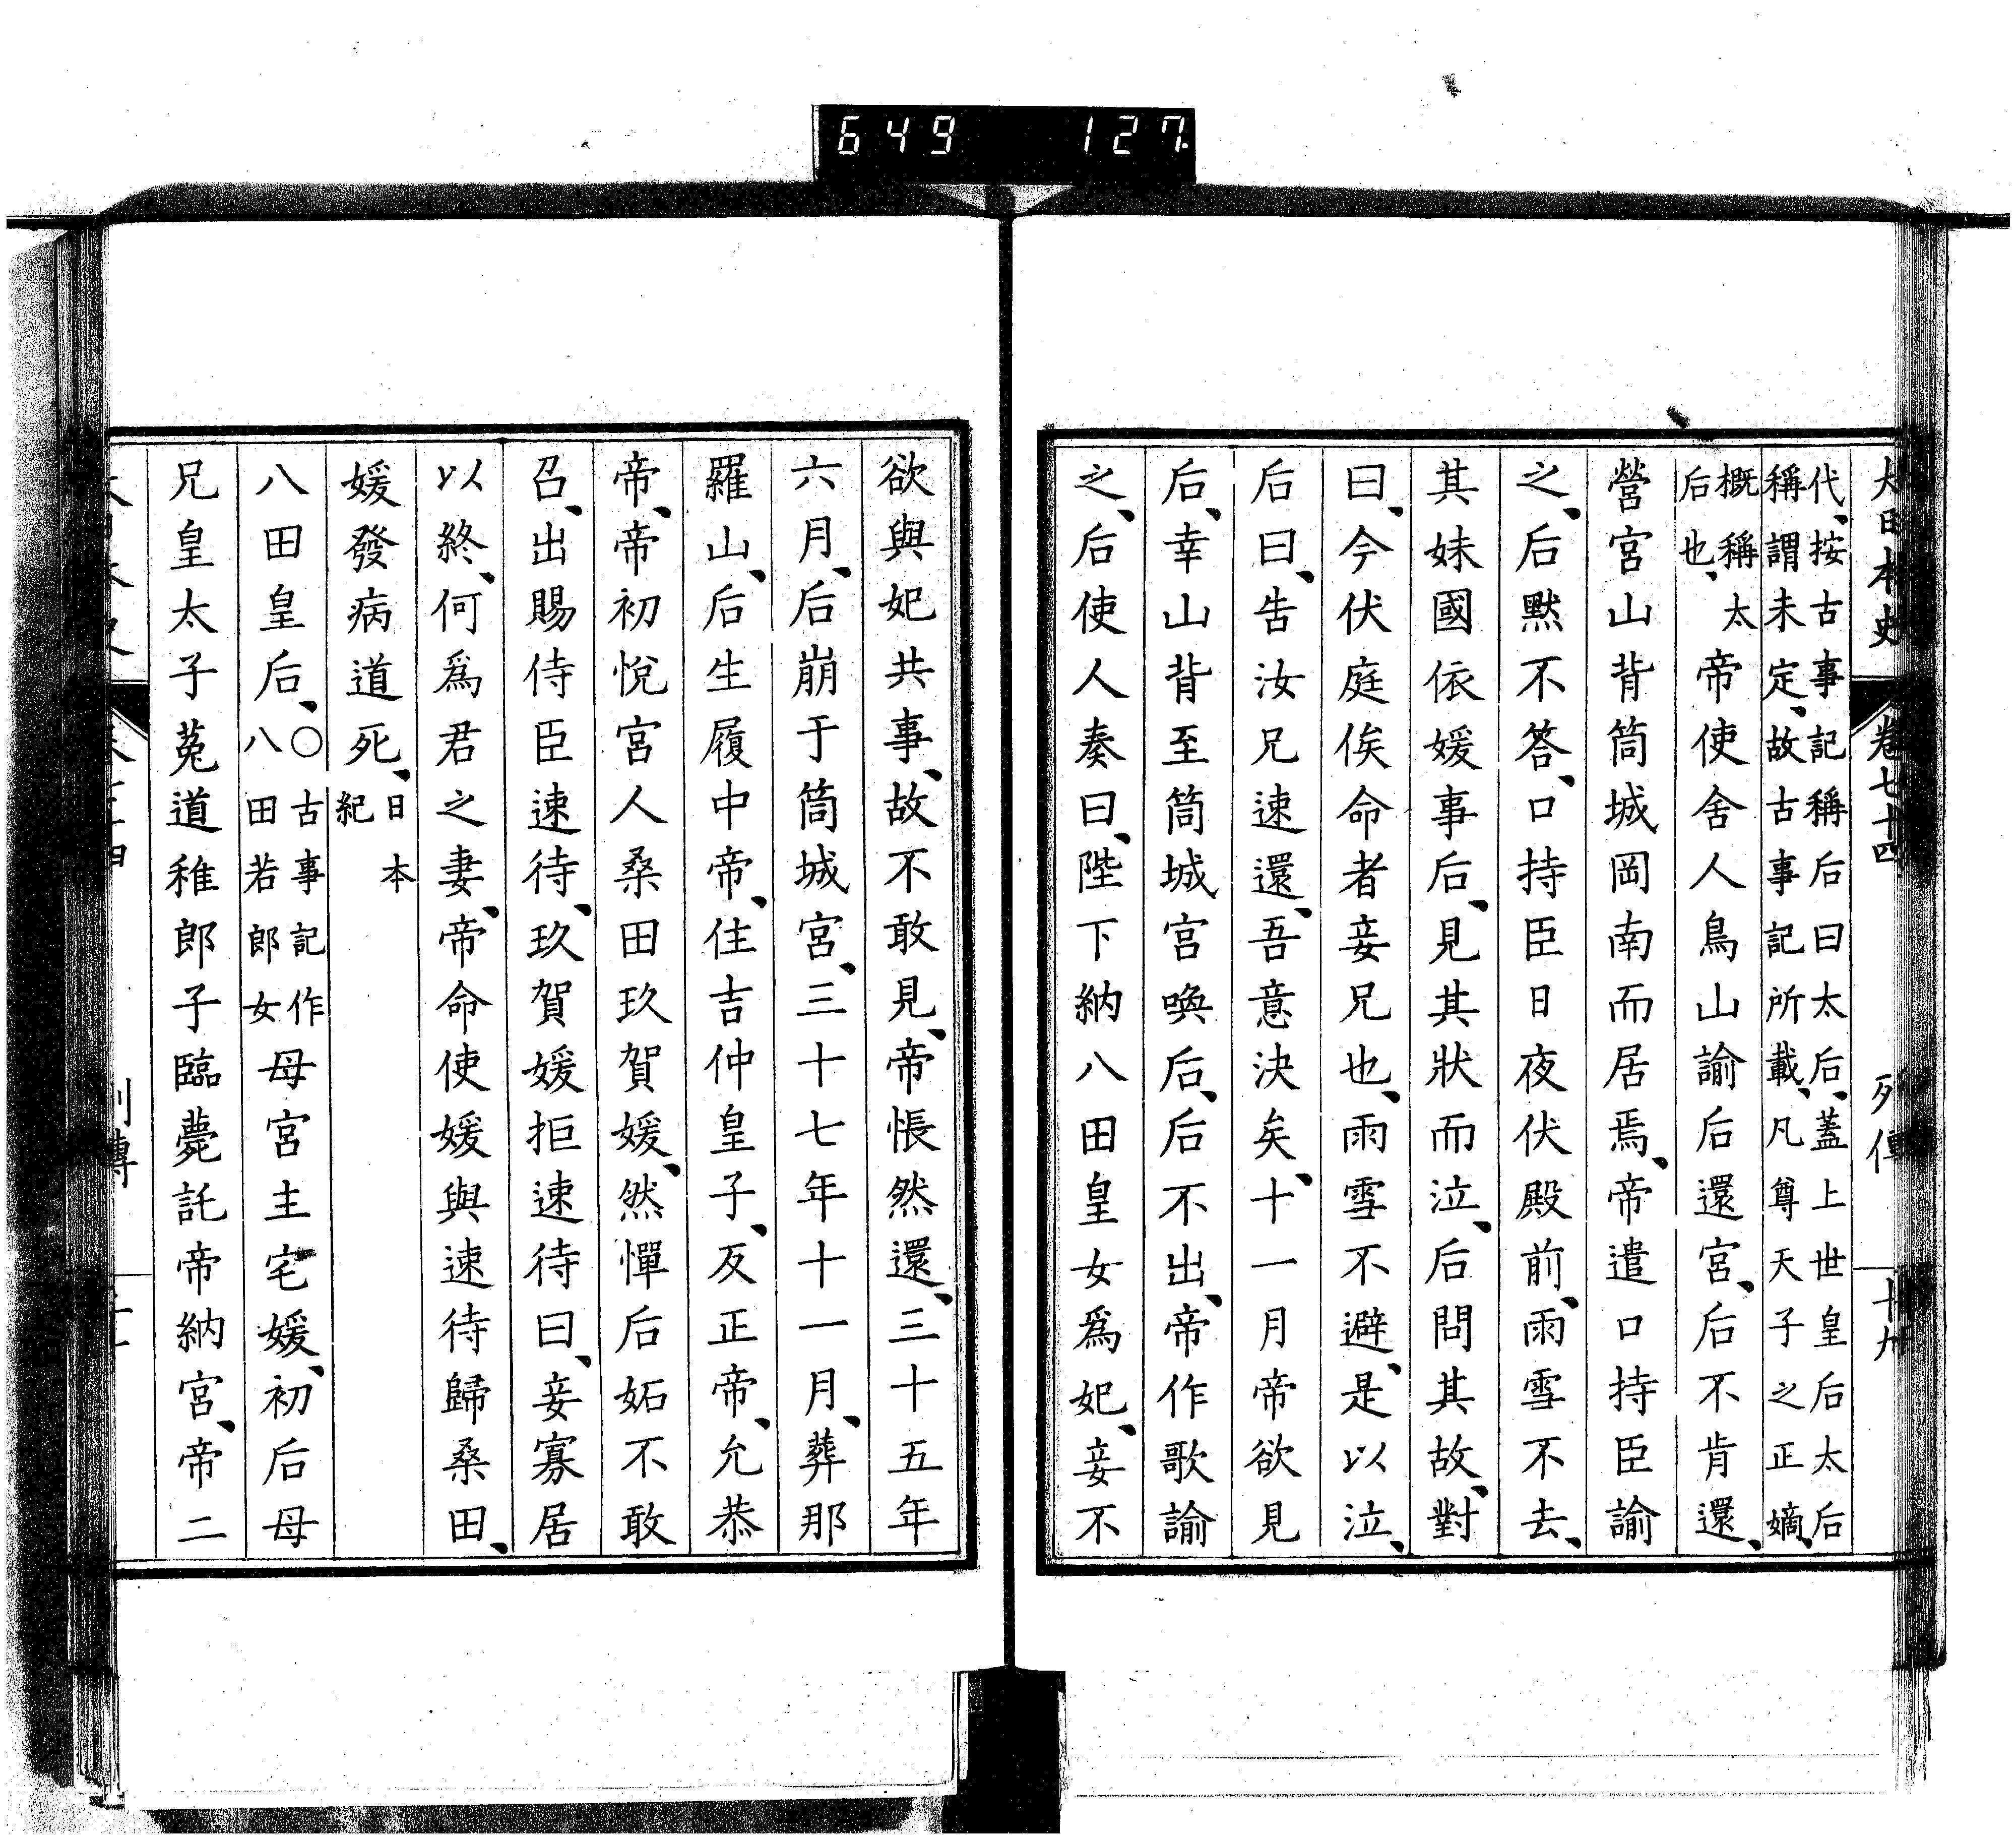 649 127
大日本史 卷七十四 列傳 十九
代、按古事記稱后曰太后、蓋上世皇后太后
稱謂未定、故古事記所載、凡尊天子之正嫡、
概稱太
后也、帝使舍人鳥山諭后還宮、后不肯還、
營宮山背筒城岡南而居焉、帝遣口持臣諭
之、后默不答、口持臣日夜伏殿前、雨雪不去、
其妹國依媛事后、見其狀而泣、后問其故、對
曰、今伏庭俟命者妾兄也、雨雪不避、是以泣、
后曰、告汝兄速還、吾意決矣、十一月帝欲見
后、幸山背至筒城宮喚后、后不出、帝作歌諭
之、后使人奏曰、陛下納八田皇女爲妃、妾不
欲與妃共事、故不敢見、帝悵然還、三十五年
六月、后崩于筒城宮、三十七年十一月、葬那
羅山、后生履中帝、住吉仲皇子、反正帝、允恭
帝、帝初悅宮人桑田玖賀媛、然憚后妬不敢
召、出賜侍臣速待、玖賀媛拒速待曰、妾寡居
以終、何爲君之妻、帝命使媛與速待歸桑田、
媛發病道死、日本
紀
八田皇后、〇古事記作
八田若郎女母宮主宅媛、初后母
兄皇太子菟道稚郎子臨薨託帝納宮、帝二